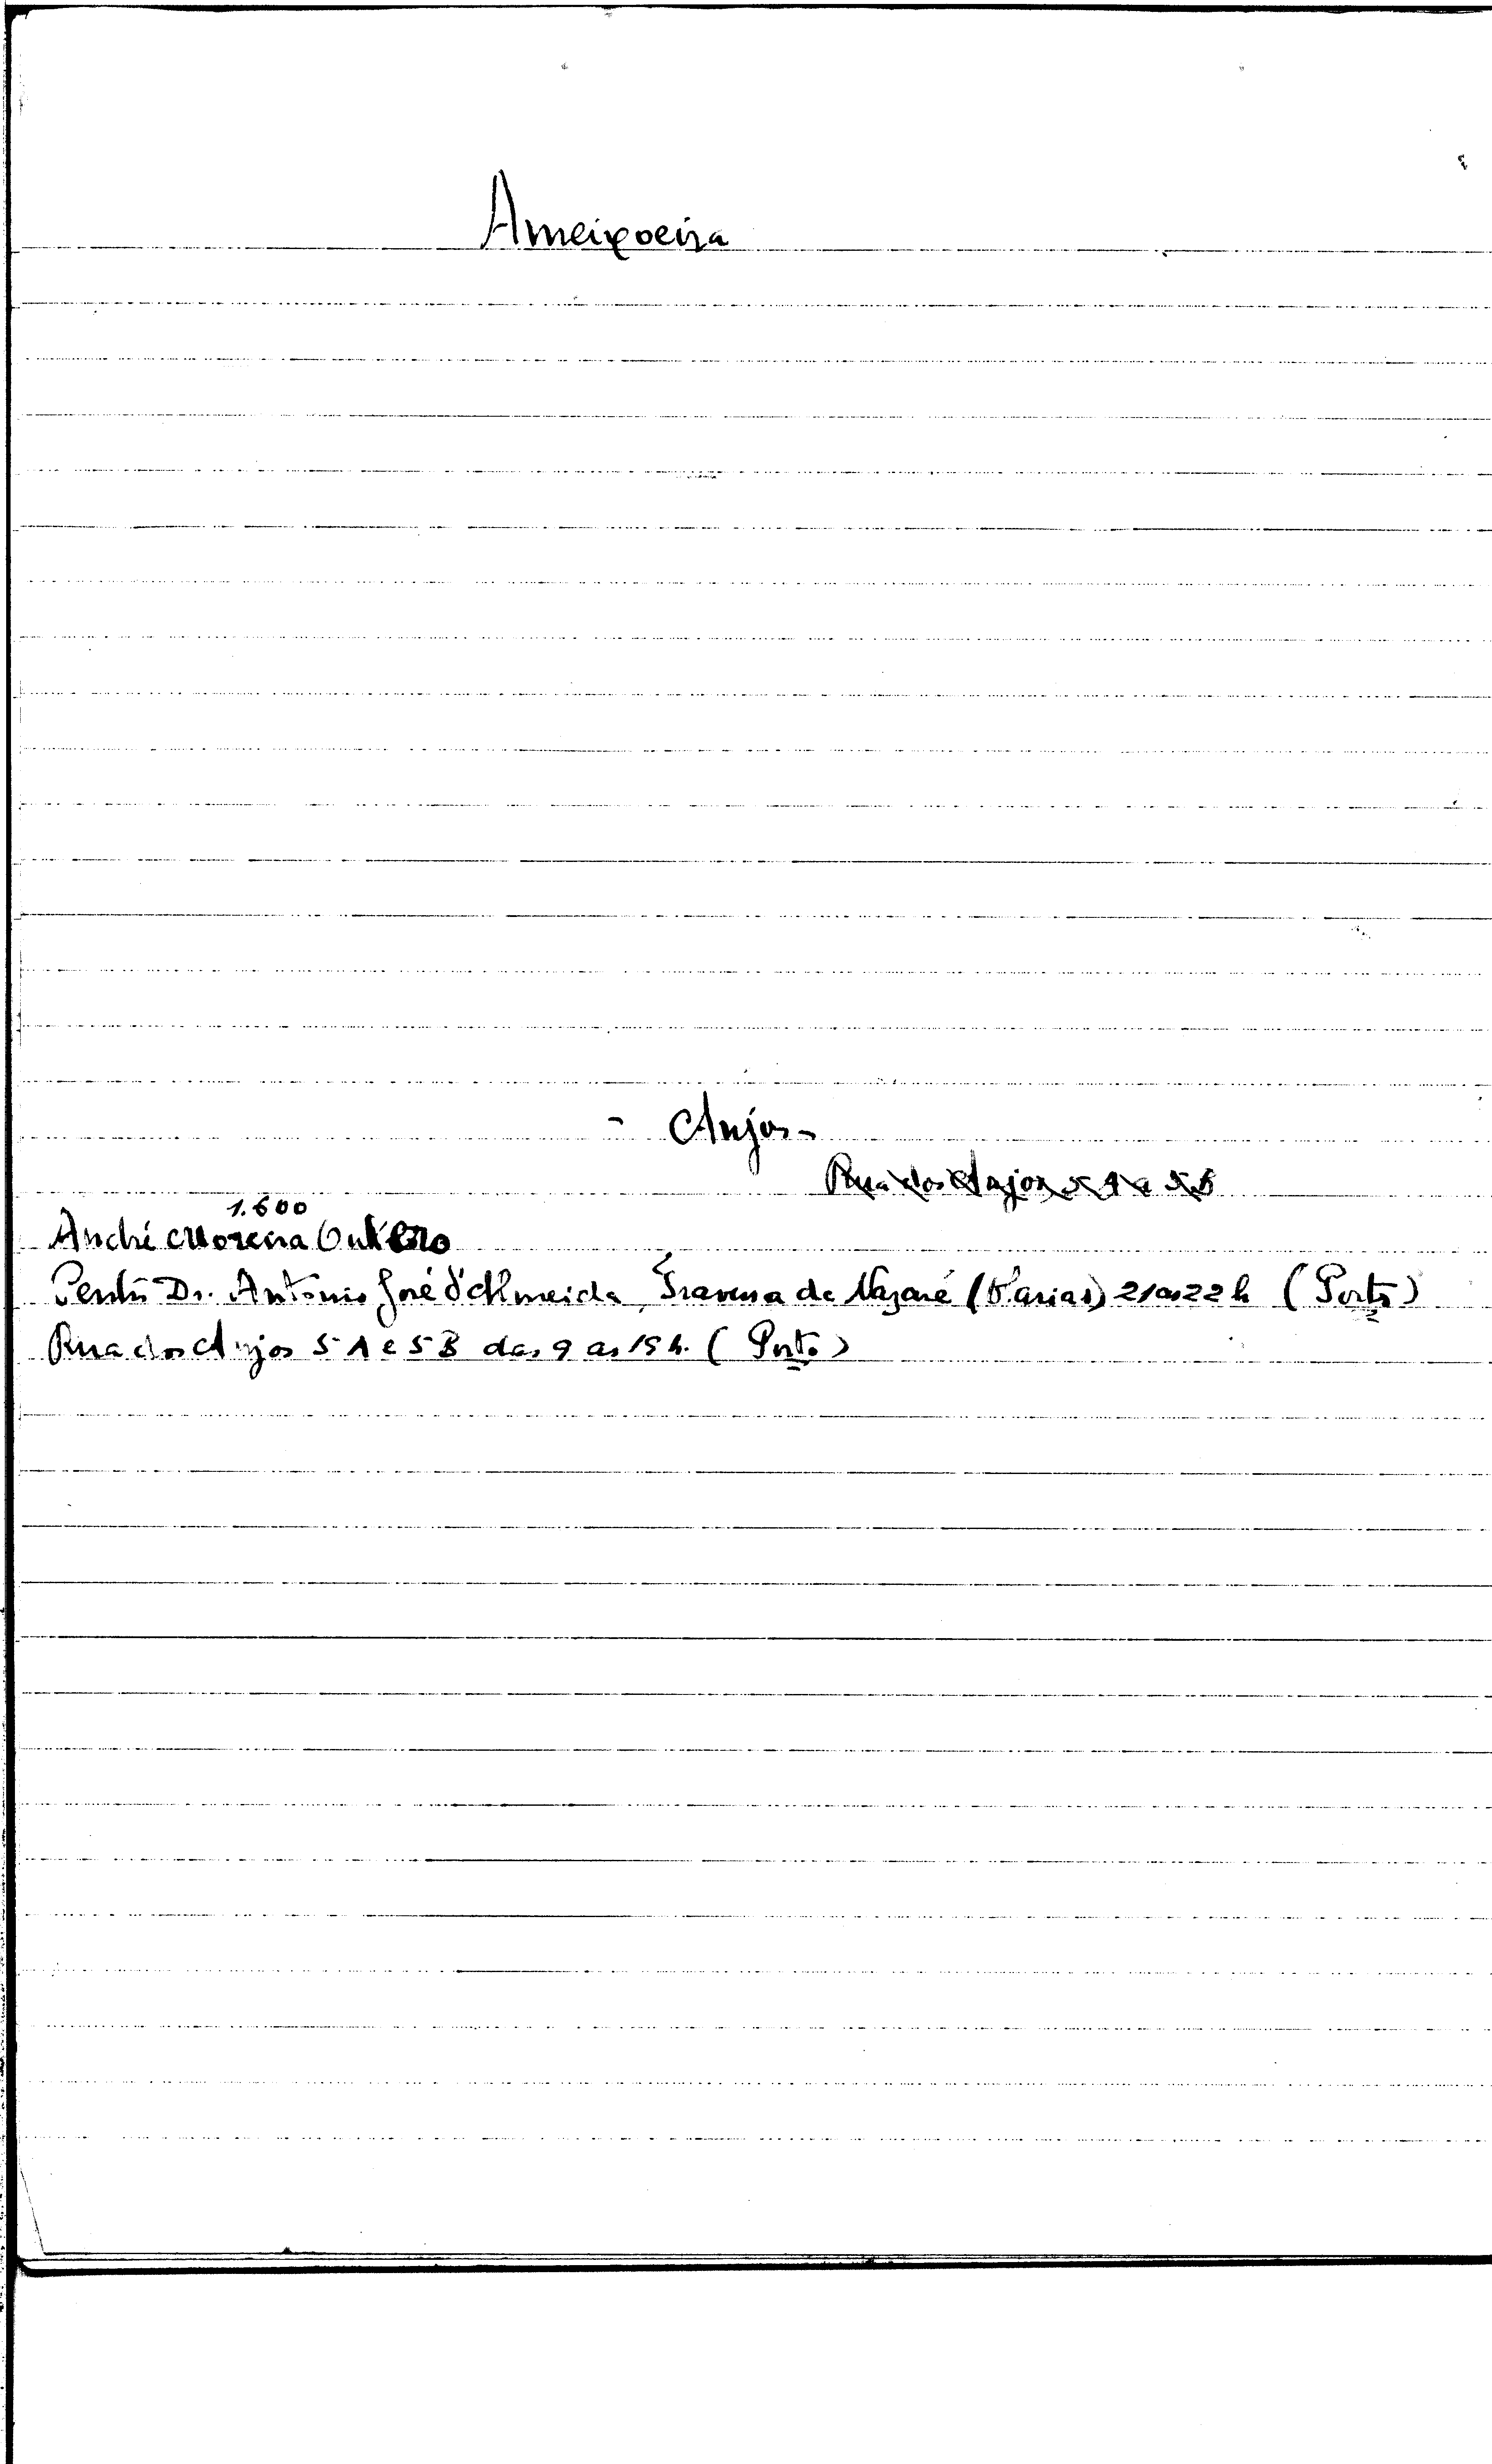 Ameixoeira
- Anjos -
Rua dos Anjos 5 A e 5 B
1.600
André Moreira Outeiro
Dr. António José d'Almeida, Travessa da Nazaré (Várias) 21 as 22 h (Porto)
Rua dos Anjos 5 A e 5 B das 9 as 19 h. (Porto)